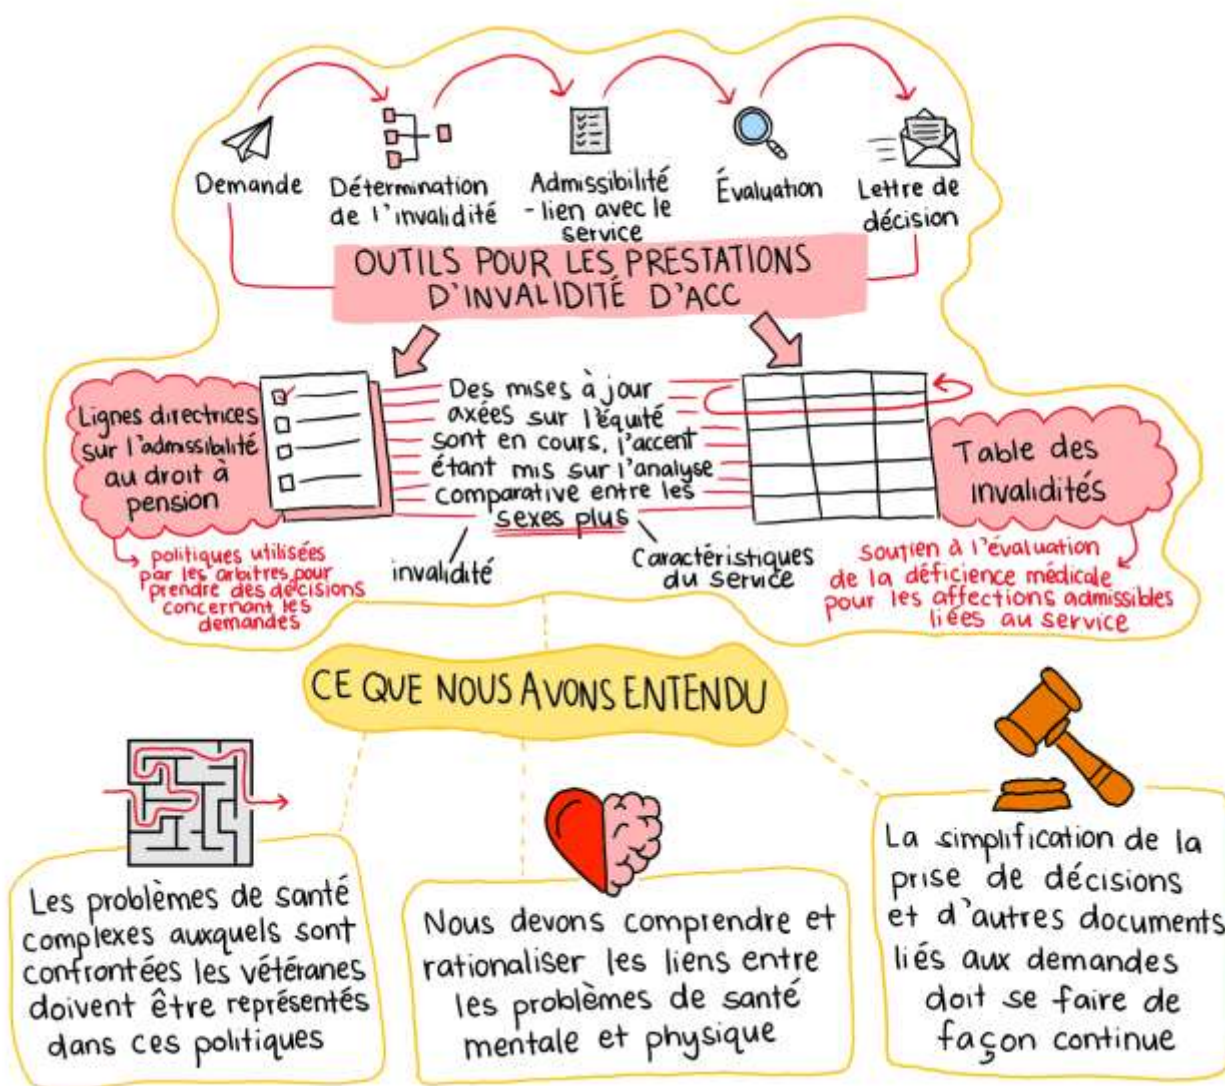 Demande
Détermination
de l'invalidité
Admissibilité
- lien avec le
service
Évaluation
Lettre de
décision
OUTILS POUR LES PRESTATIONS
D'INVALIDITÉ D'ACC
Lignes directrices
sur l'admissibilité
au droit à
pension
politiques utilisées
par les arbitres pour
prendre des décisions
concernant les
demandes
Des mises à jour
axées sur l'équité
sont en cours, l'accent
étant mis sur l'analyse
comparative entre les
sexes plus
invalidité
Caractéristiques
du service
Table des
invalidités
soutien à l'évaluation
de la déficience médicale
pour les affections admissibles
liées au service
CE QUE NOUS AVONS ENTENDU
Les problèmes de santé
complexes auxquels sont
confrontées les vétéranes
doivent être représentés
dans ces politiques
Nous devons comprendre et
rationaliser les liens entre
les problèmes de santé
mentale et physique
La simplification de la
prise de décisions
et d'autres documents
liés aux demandes
doit se faire de
façon continue